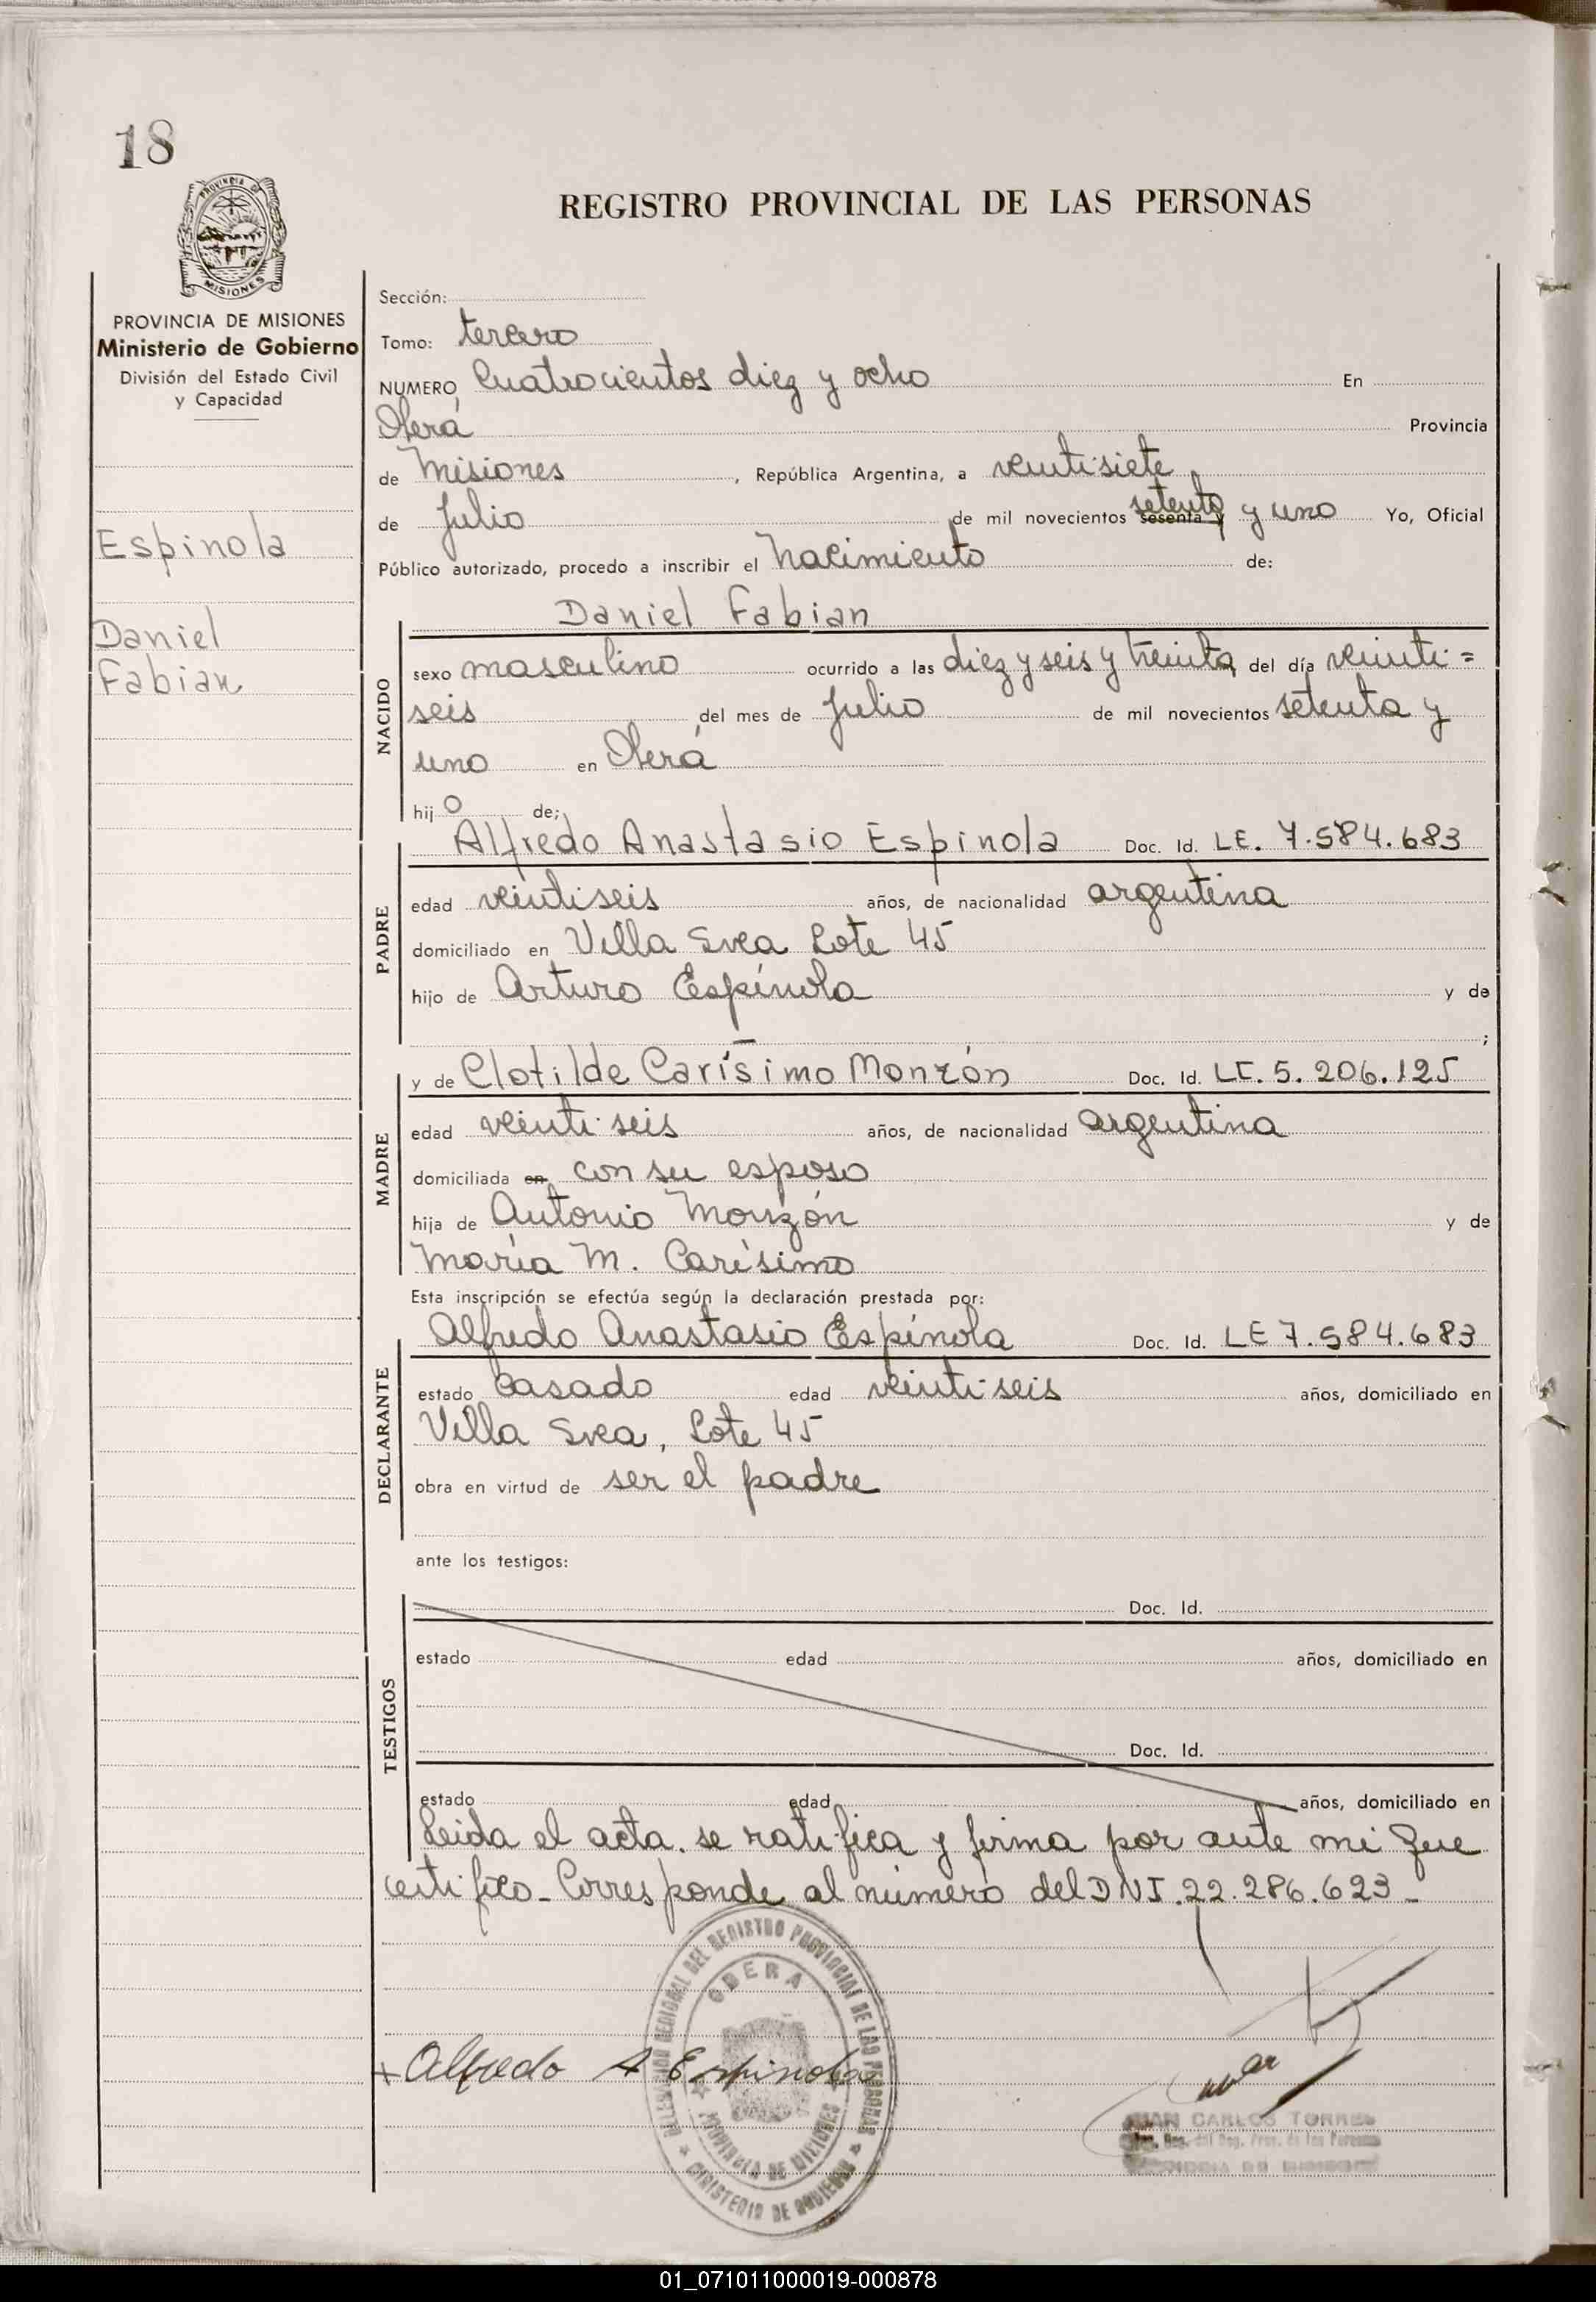 18
PROVINCIA DE
MISIONES
REGISTRO PROVINCIAL DE LAS PERSONAS
PROVINCIA DE MISIONES
Ministerio de Gobierno
División del Estado Civil
y Capacidad
Espinola
Daniel
Fabian
Sección:
Tomo: tercero
NUMERO Cuatrocientos diez y ocho En
Oberá Provincia
de Misiones, República Argentina, a veintisiete
de Julio de mil novecientos sesenta y setenta y uno Yo, Oficial
Público autorizado, procedo a inscribir el Nacimiento de:
NACIDO
Daniel Fabian
sexo masculino ocurrido a las diez y seis y treinta del día veinti=
seis del mes de Julio de mil novecientos setenta y
uno en Oberá
hijo de;
PADRE
Alfredo Anastasio Espinola Doc. Id. LE. 7.584.683
edad veintiseis años, de nacionalidad argentina
domiciliado en Villa Svea Lote 45
hijo de Arturo Espínola y de
— ;
MADRE
y de Clotilde Carísimo Monzón Doc. Id. LC. 5.206.125
edad veintiseis años, de nacionalidad argentina
domiciliada en con su esposo
hija de Antonio Monzón y de
María M. Carísimo
Esta inscripción se efectúa según la declaración prestada por:
DECLARANTE
Alfredo Anastasio Espínola Doc. Id. LE 7.584.683
estado Casado edad veintiseis años, domiciliado en
Villa Svea, Lote 45
obra en virtud de ser el padre
ante los testigos:
TESTIGOS
Doc. Id.
estado edad años, domiciliado en
Doc. Id.
estado edad años, domiciliado en
Leida el acta. se ratifica y firma por ante mi que
certifico_ Corresponde al número del DNI. 22.286.623_
DELEGACION REGIONAL DEL REGISTRO PROVINCIAL DE LAS PERSONAS
OBERA
PROVINCIA DE MISIONES
MINISTERIO DE GOBIERNO
+ Alfredo A Espinola
JUAN CARLOS TORRES
del Reg. Prov. de las Personas
01_071011000019-000878